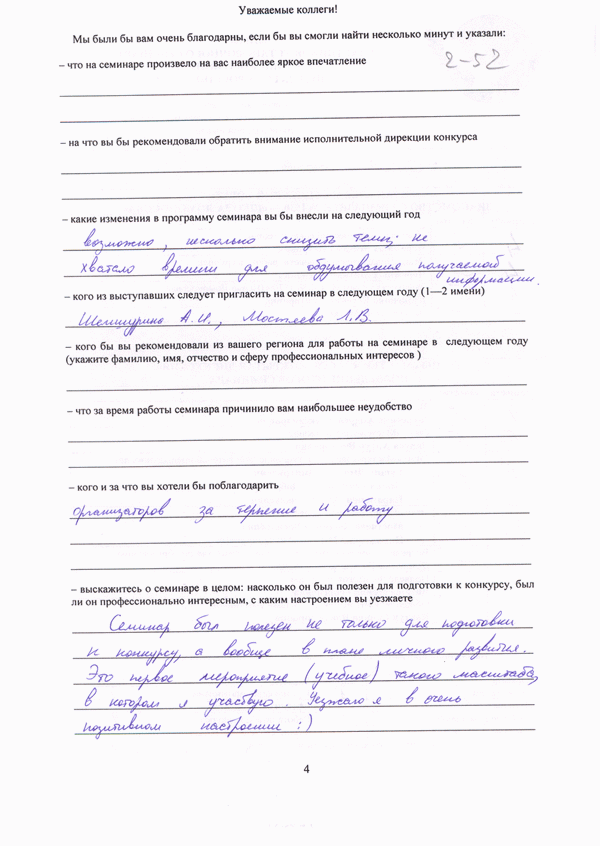 Уважаемые коллеги!
Мы были бы вам очень благодарны, если бы вы смогли найти несколько минут и указали:
2-52
– что на семинаре произвело на вас наиболее яркое впечатление
– на что вы бы рекомендовали обратить внимание исполнительной дирекции конкурса
– какие изменения в программу семинара вы бы внесли на следующий год
возможно, несколько снизить темп; не
хватало времени для обдумывания получаемой
информации.
– кого из выступавших следует пригласить на семинар в следующем году (1—2 имени)
А.И., Л.В.
– кого бы вы рекомендовали из вашего региона для работы на семинаре в следующем году
(укажите фамилию, имя, отчество и сферу профессиональных интересов )
– что за время работы семинара причинило вам наибольшее неудобство
– кого и за что вы хотели бы поблагодарить
организаторов за терпение и работу
– выскажитесь о семинаре в целом: насколько он был полезен для подготовки к конкурсу, был
ли он профессионально интересным, с каким настроением вы уезжаете
Семинар был полезен не только для подготовки
к конкурсу, а вообще в плане личного развития.
Это первое мероприятие (учебное) такого масштаба,
в котором я участвую. Уезжаю я в очень
позитивном настроении :)
4